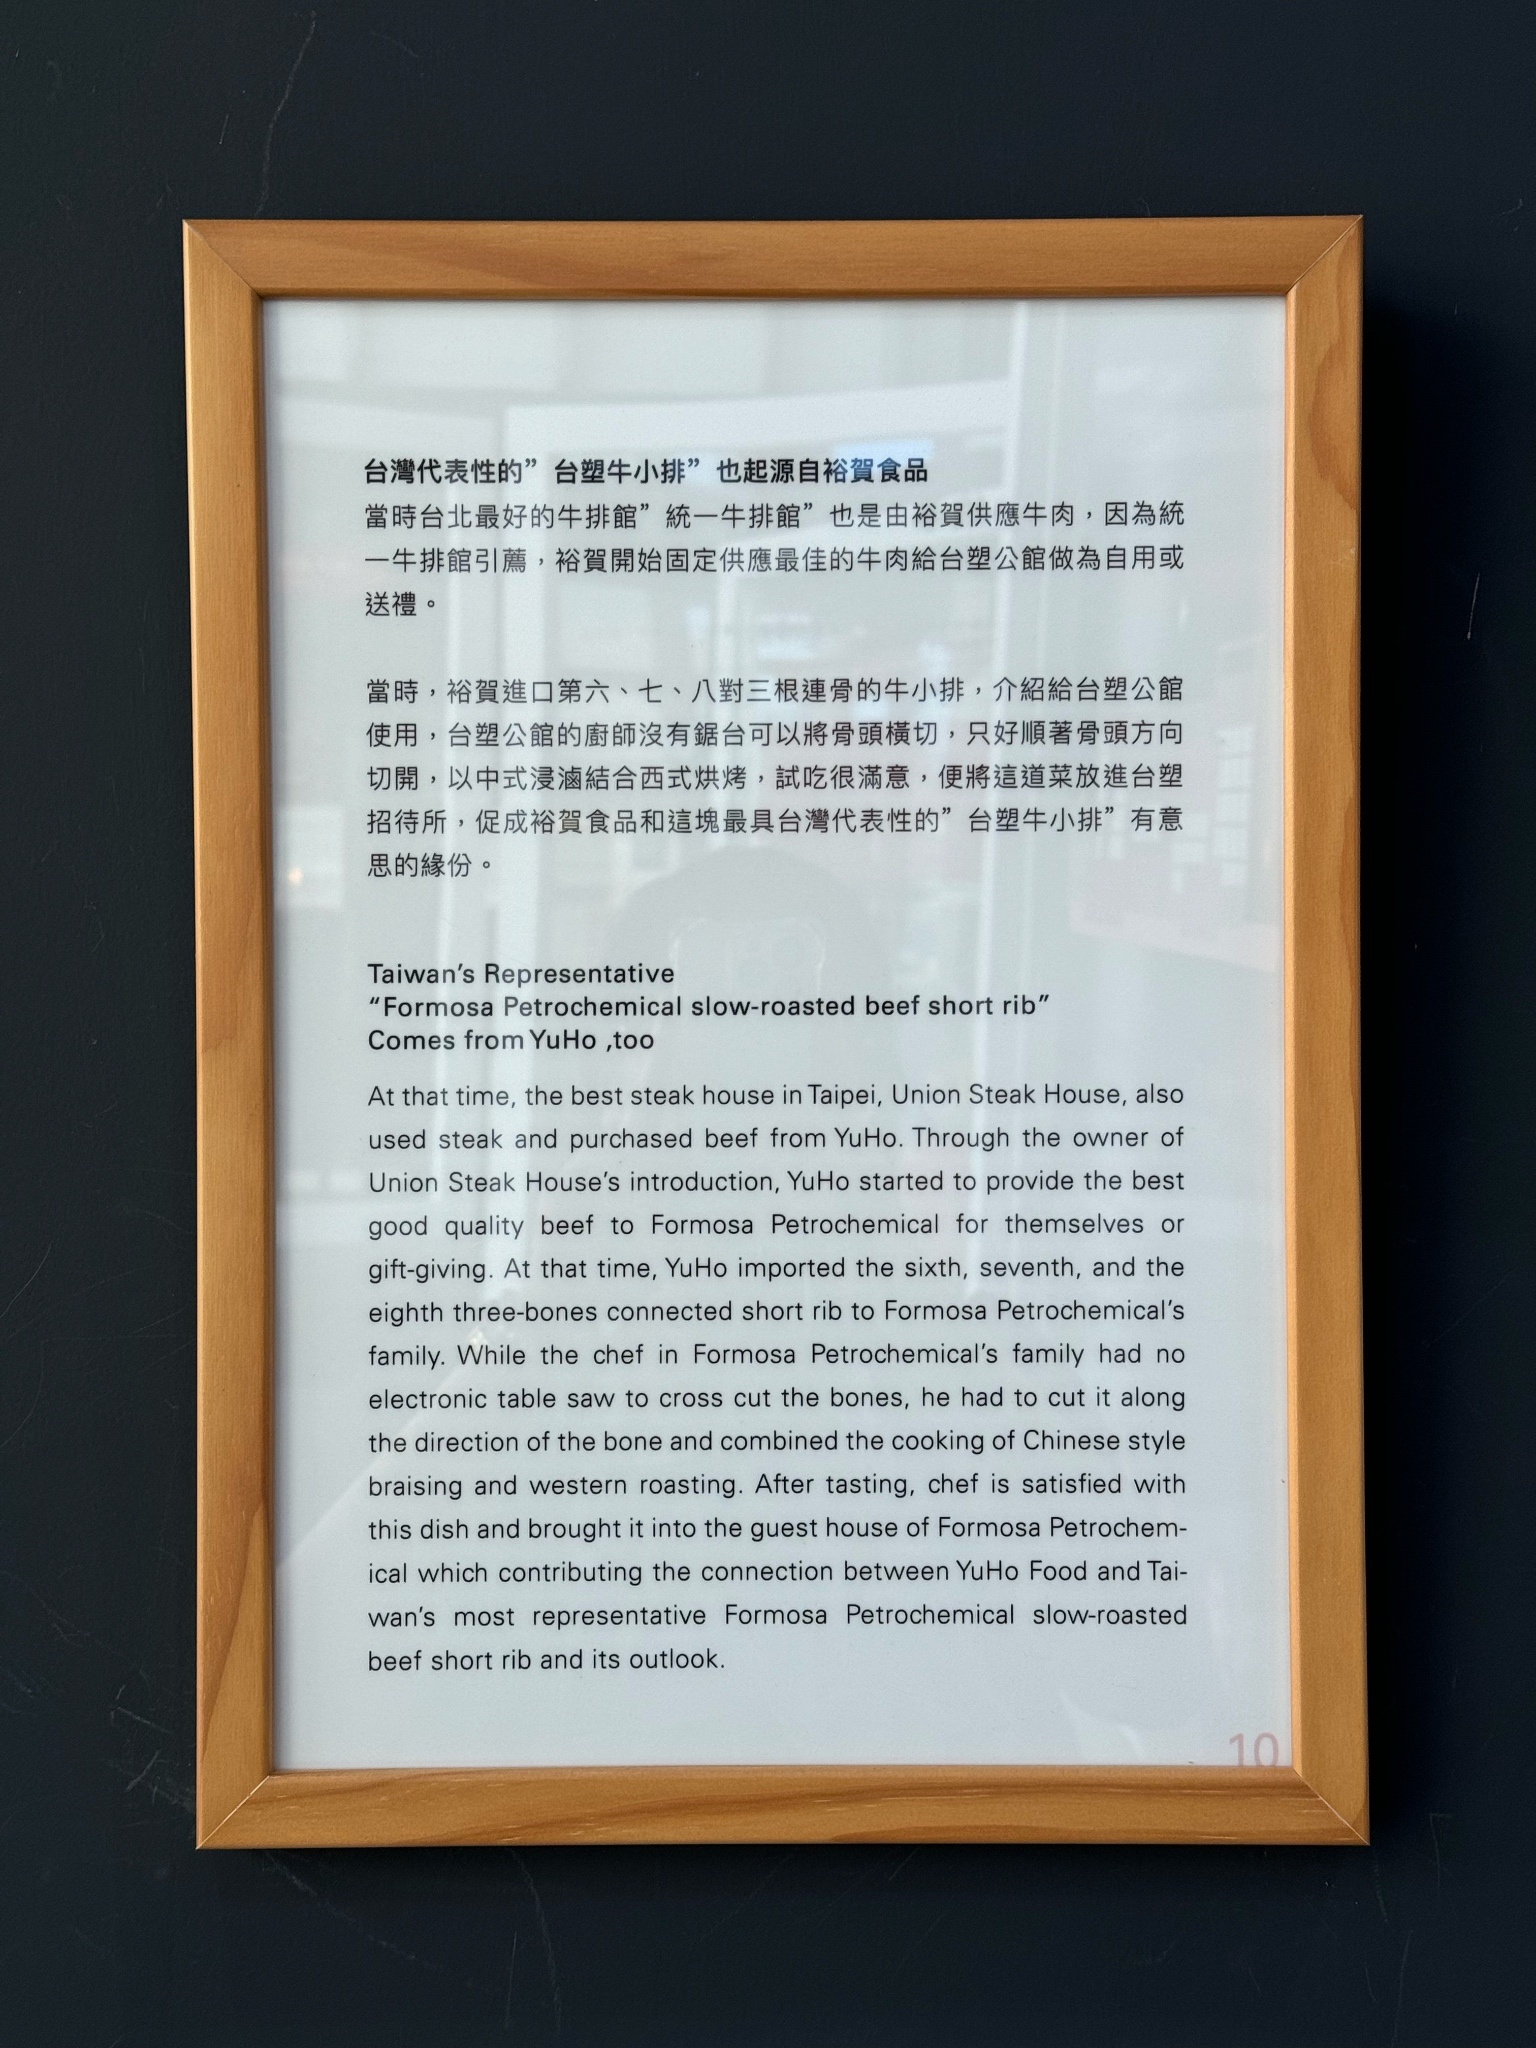 台灣代表性的”台塑牛小排”也起源自裕賀食品
當時台北最好的牛排館”統一牛排館”也是由裕賀供應牛肉，因為統
一牛排館引薦，裕賀開始固定供應最佳的牛肉給台塑公館做為自用或
送禮。
當時，裕賀進口第六、七、八對三根連骨的牛小排，介紹給台塑公館
使用，台塑公館的廚師沒有鋸台可以將骨頭橫切，只好順著骨頭方向
切開，以中式浸滷結合西式烘烤，試吃很滿意，便將這道菜放進台塑
招待所，促成裕賀食品和這塊最具台灣代表性的”台塑牛小排”有意
思的緣份。
Taiwan’s Representative
“Formosa Petrochemical slow-roasted beef short rib”
Comes from YuHo ,too
At that time, the best steak house in Taipei, Union Steak House, also
used steak and purchased beef from YuHo. Through the owner of
Union Steak House’s introduction, YuHo started to provide the best
good quality beef to Formosa Petrochemical for themselves or
gift-giving. At that time, YuHo imported the sixth, seventh, and the
eighth three-bones connected short rib to Formosa Petrochemical’s
family. While the chef in Formosa Petrochemical’s family had no
electronic table saw to cross cut the bones, he had to cut it along
the direction of the bone and combined the cooking of Chinese style
braising and western roasting. After tasting, chef is satisfied with
this dish and brought it into the guest house of Formosa Petrochem-
ical which contributing the connection between YuHo Food and Tai-
wan’s most representative Formosa Petrochemical slow-roasted
beef short rib and its outlook.
10